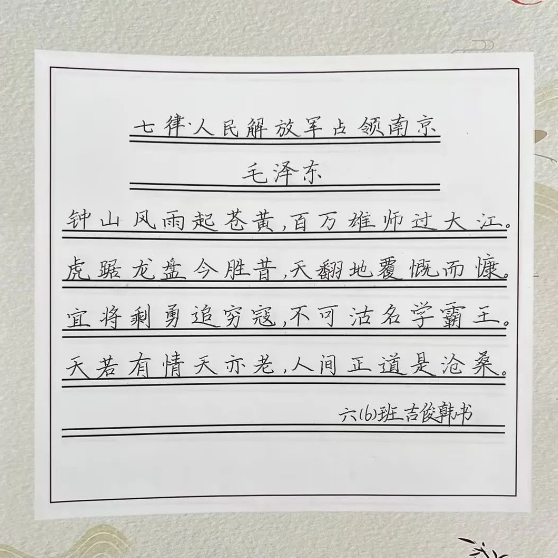 七律·人民解放军占领南京
毛泽东
钟山风雨起苍黄,百万雄师过大江。
虎踞龙盘今胜昔,天翻地覆慨而慷。
宜将剩勇追穷寇,不可沽名学霸王。
天若有情天亦老,人间正道是沧桑。
六(6)班 吉俊韩书